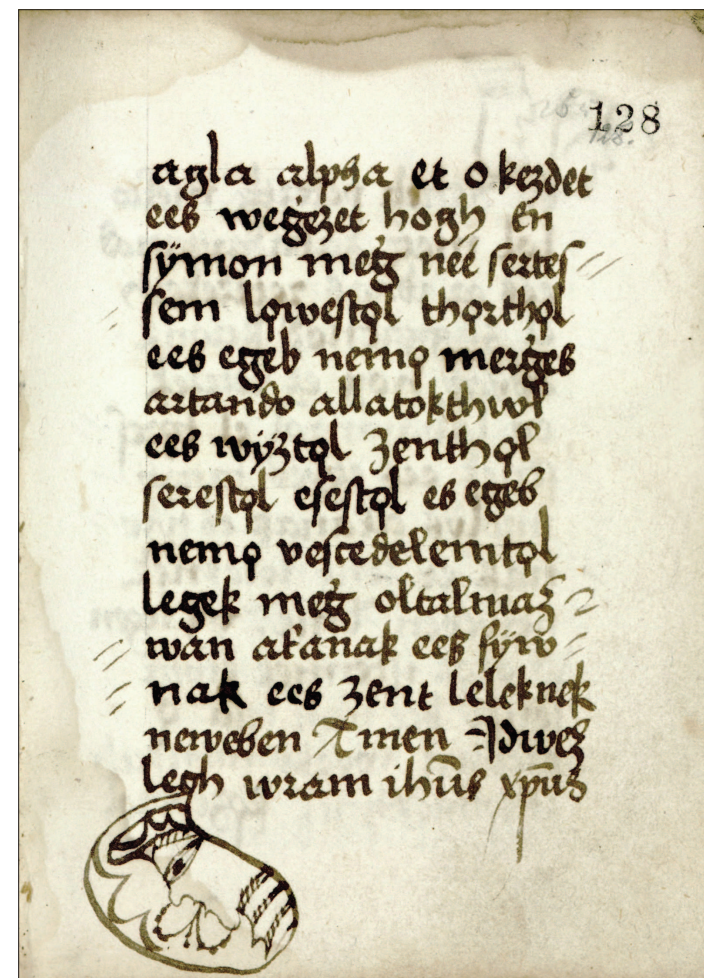 128
agla alpha et o kezdet
ees weġezet hogh En
sÿmon meġ neė sertes//
sem lọwestọl thọrthọl
ees egeb nemọ merġes
artando allatokthwl
ees wÿztọl Zenthọl
serestọl esestọl es egeb
nemọ vescedelemtọl
legek meġ oltalmaz
wan aťanak ees fÿw//
nak ees zent leleknek
neweben Amen Idwez
legh wram ihūs xpūs